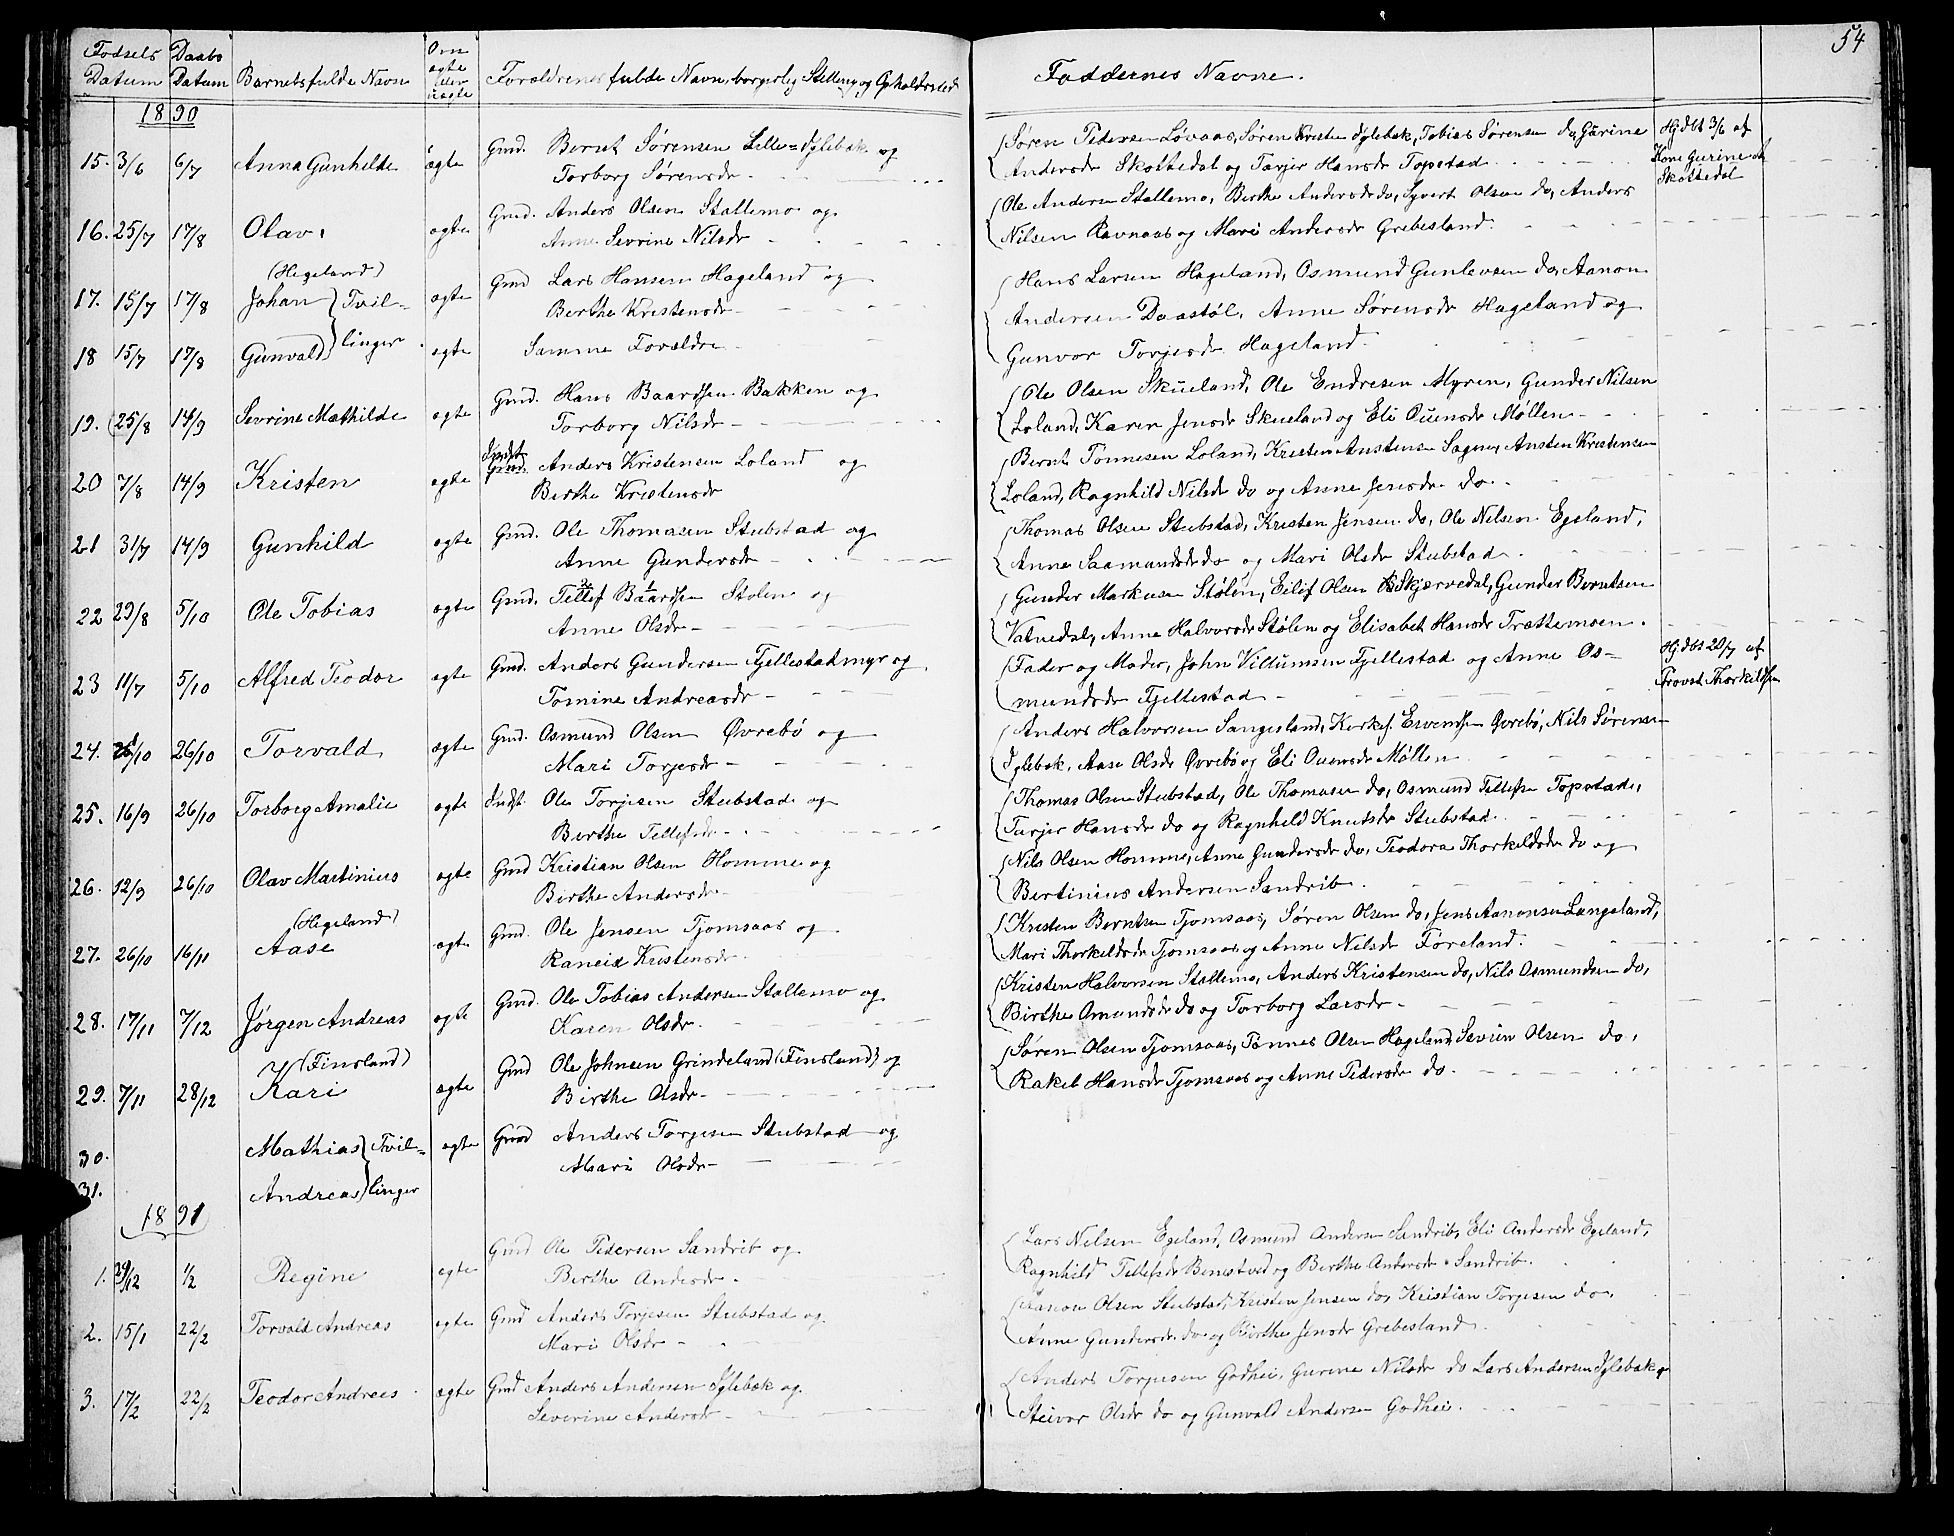 54
Fødsels Datum | Daabs Datum | Barnets fulde Navn | Om ægte eller uægte | Forældrenes fulde Navn, borgerlig Stilling og Opholdssted | Faddernes Navne.
1890
15. 3/6 6/7 Anna Gunhilde ægte Gmd. Bernt Sørensen Lille=Iglebæk og
Torborg Sørensdr
(Søren Pedersen Løvaas, Søren Kristen Iglebæk, Tobias Sørensen do, Gurine
Andersdr Skottedal og Tarjer Hansdr Topstad
Hjdbt 3/6 af
Kone Gurine
Skottedal
16. 25/7 17/8 Olav. ægte Gmd. Anders Olsen Stallemo og
Anne Sevrine Nilsdr
(Ole Andersen Stallemo, Birthe Andersdr do, Syvert Olsen do, Anders
Nilsen Ravnaas og Mari Andersdr Grebesland.
(Hegeland)
17. 15/7 17/8 Johan } Tvil= ægte Gmd Lars Hansen Hageland og
Berthe Kristensdr
(Hans Larsen Hageland, Osmund Gunlevsen do, Aanon
Andersen Daastøl, Anne Sørensdr Hageland og
18 15/7 17/8 Gunvald } linger. ægte Samme Forældre
Gunvor Torjesdr Hageland.
19. 25/8 14/9 Sevrine Mathilde ægte Gmd. Hans Baardsen Bakken og
Torborg Nilsdr
(Ole Olsen Skueland, Ole Endresen Myren, Gunder Nilsen
Loland, Karen Jensdr Skueland og Eli Ouensdr Møllen
20 7/8 14/9 Kristen ægte Indst. Gmd. Anders Kristensen Loland og
Birthe Kristensdr
(Bernt Tønnesen Loland, Kristen Austensen Sagen, Austen Kristensen
Loland, Ragnhild Nilsdr do og Anne Jensdr do.
21 31/7 14/9 Gunhild ægte Gmd. Ole Thomasen Stubstad og
Anne Gundersdr
(Thomas Olsen Stubstad, Kristen Jensen do, Ole Nilsen Egeland,
Anne Saamundsdr do og Mari Olsdr Stubstad.
22 29/8 5/10 Ole Tobias ægte Gmd. Tellef Baardsen Stølen og
Anne Olsdr
(Gunder Markusen Stølen, Eilef Olsen Skjervedal, Gunder Berntsen
Vatnedal, Anne Halvorsdr Stølen og Elisabet Hansdr Trættemoen.
23 11/7 5/10 Alfred Teodor ægte Gmd. Anders Gundersen Fjellestadmyr og
Tomine Andreasdr
(Fader og Moder, John Villumsen Fjellestad og Anne Os=
mundsdr Fjellestad
Hjdbt 20/7 af
Provst Thorkildsen
24. /10 26/10 Torvald ægte Gmd. Osmund Olsen Øvrebø og
Mari Torjesdr
(Anders Halvorsen Sangesland, Kirkes. Ervendsen Øvrebø, Nils Sørensen
Iglebæk, Aase Olsdr Øvrebø og Eli Ouensdr Møllen
25. 16/9 26/10 Torborg Amalie ægte Indst. Ole Torjesen Stubstad og
Berthe Tellefsdr
(Thomas Olsen Stubstad, Ole Thomasen do, Osmund Tellefsen Topstad,
Tarjer Hansdr do og Ragnhild Knutsdr Stubstad.
26. 12/9 26/10 Olav Martinius ægte Gmd Kristian Olsen Homme og
Birthe Andersdr
(Nils Olsen Homme, Anne Gundersdr do, Teodora Thorkildsdr do og
Bertinius Andersen Sandrib.
(Hegeland)
27. 26/10 16/11 Aase ægte Gmd. Ole Jensen Tjomsaas og
Raneid Kristensdr
(Kristen Berntsen Tjomsaas, Søren Olsen do, Jens Aanonsen Langeland,
Mari Thorkildsdr Tjomsaas og Anne Nilsdr Føreland.
28. 17/11 7/12 Jørgen Andreas ægte Gmd. Ole Tobias Andersen Stallemo og
Karen Olsdr.
(Kristen Halvorsen Stallemo, Anders Kristensen do, Nils Osmundsen do,
Birthe Omundsdr do og Torborg Larsdr
(Finsland)
29. 7/11 28/12 Kari ægte Gmd Ole Johnsen Grindeland (Finsland) og
Birthe Olsdr
(Søren Olsen Tjomsaas, Tønnes Olsen Hageland, Sevrin Olsen do,
Rakel Hansdr Tjomsaas og Anne Pedersdr do.
30. Mathias } Tvil= ægte Gmd Anders Torjesen Stubstad og
Mari Olsdr
31. Andreas } linger
1891
1. 29/12 1/2 Regine ægte Gmd Ole Pedersen Sandrib og
Berthe Andersdr.
(Lars Nilsen Egeland, Osmund Andersen Sandrib, Eli Andersdr Egeland,
Ragnhild Tellefsdr Benestved og Berthe Andersdr Sandrib.
2. 15/1 22/2 Torvald Andreas ægte Gmd Anders Torjesen Stubstad og
Mari Olsdr
(Aanon Olsen Stubstad, Kristen Jensen do, Kristian Torjesen do,
Anne Gundersdr do og Birthe Jensdr Grebesland.
3. 17/2 22/2 Teodor Andreas. ægte Gmd Anders Andersen Iglebæk og
Severine Andersdr
(Anders Torjesen Godhei, Gurine Nilsdr do Lars Andersen Iglebæk
Steivor Olsdr do og Gunvald Andersen Godhei.